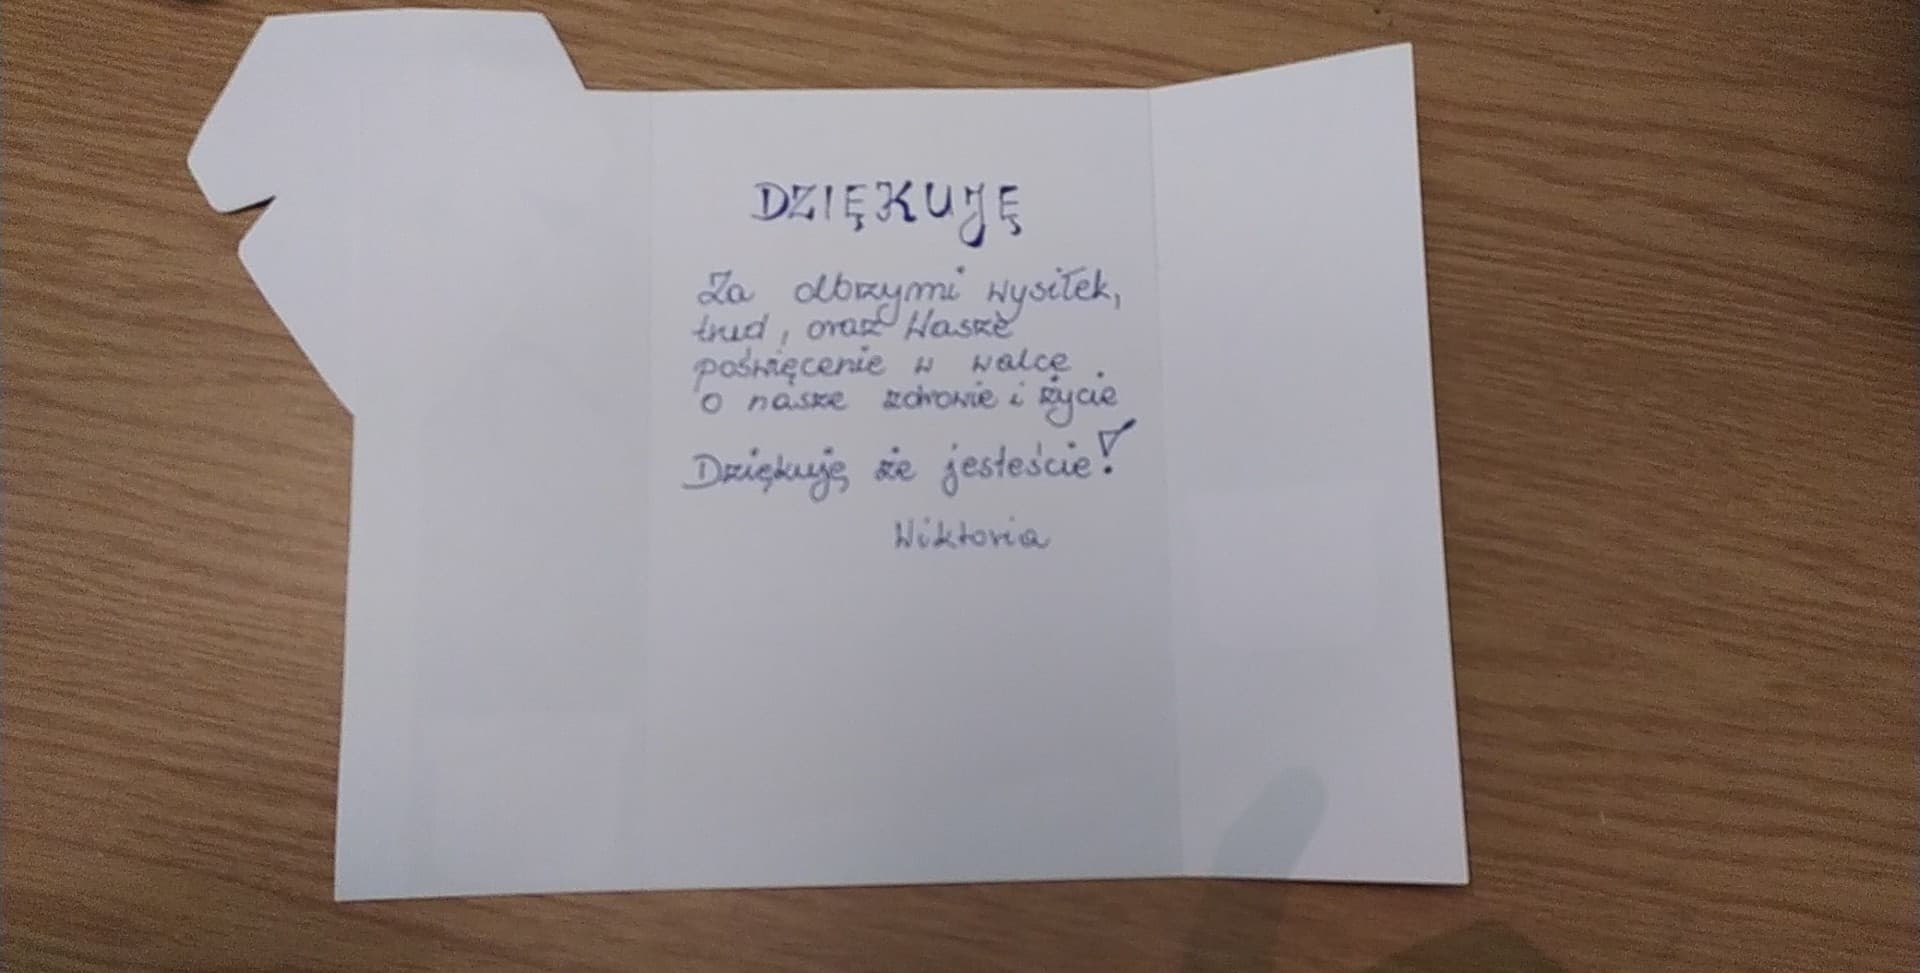 DZIĘKUJĘ
Za olbrzymi wysiłek,
trud, oraz Wasze
poświęcenie w walce
o nasze zdrowie i życie
Dziękuję że jesteście!
Wiktoria